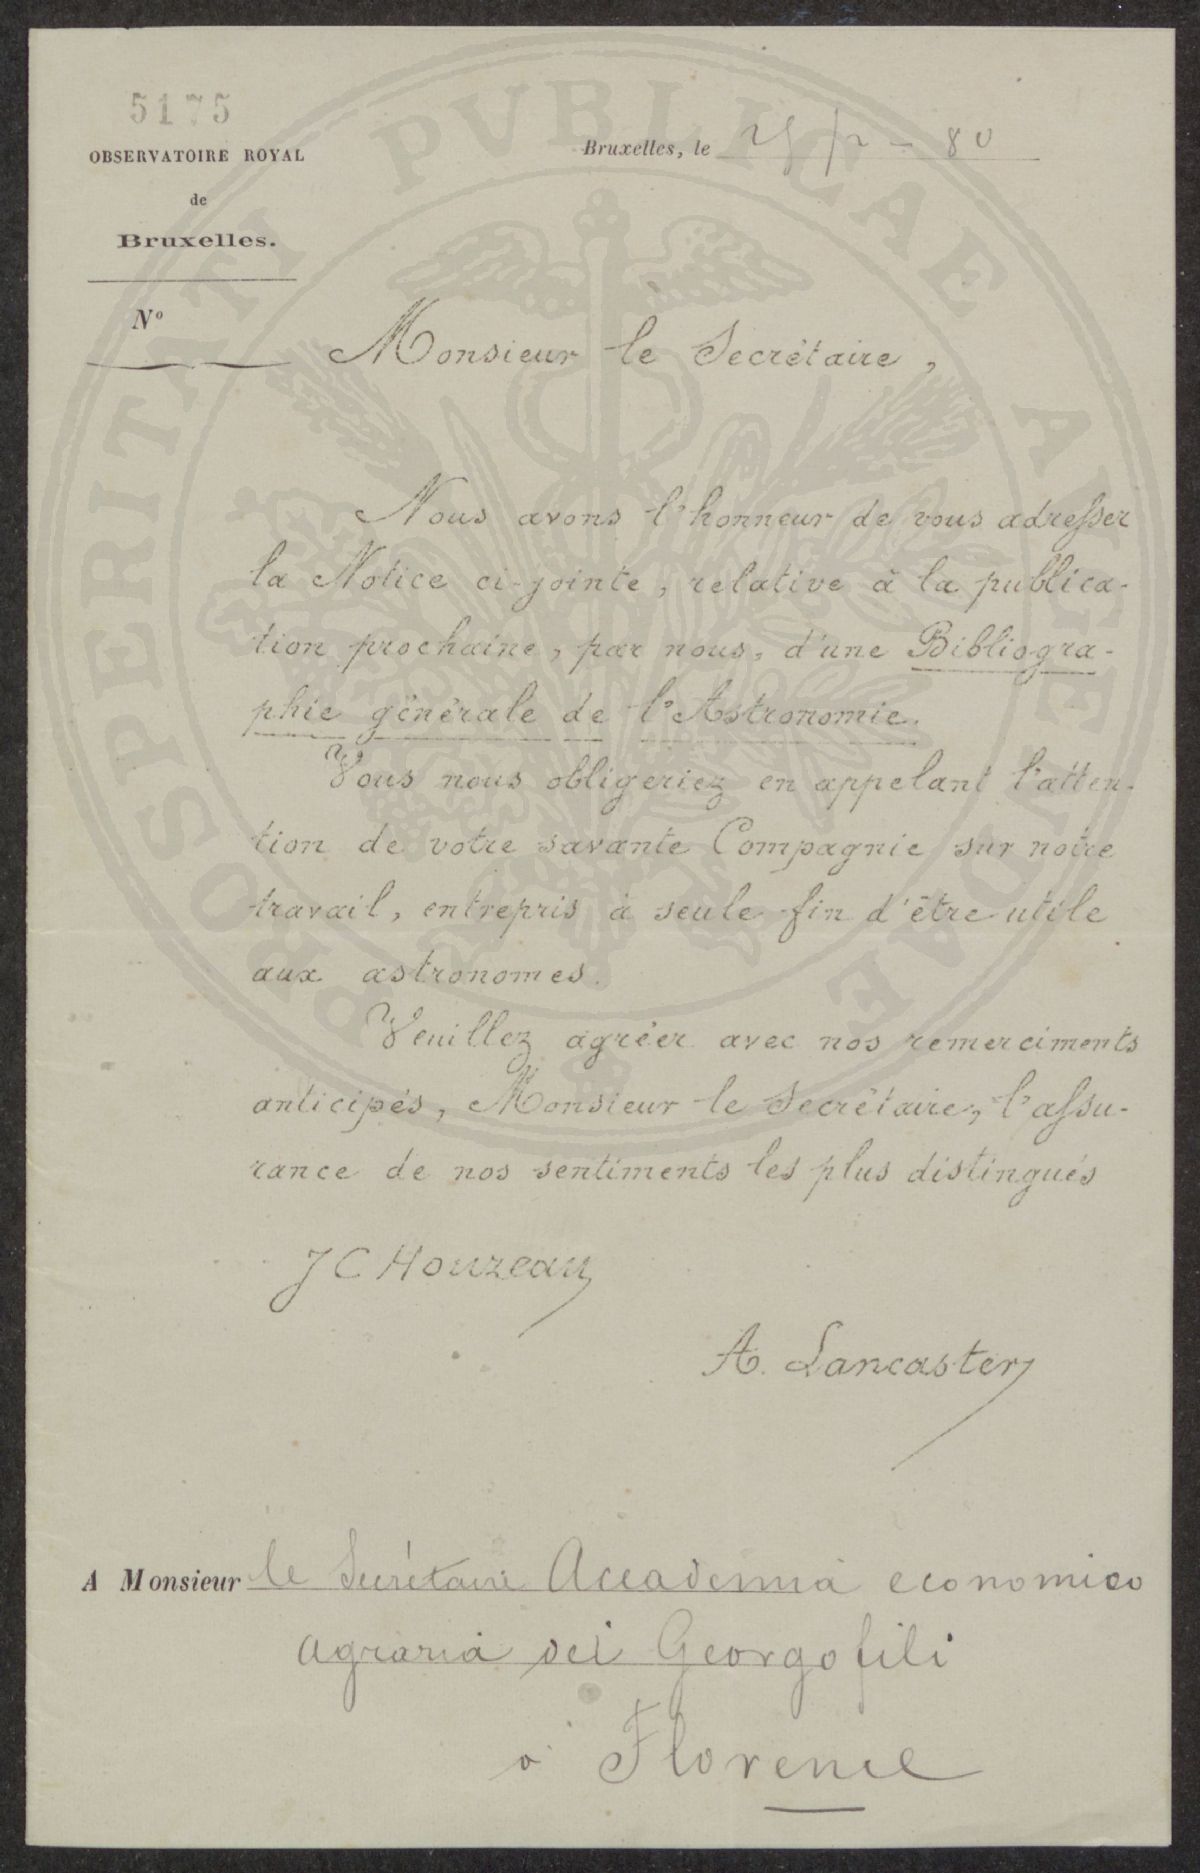 5175
OBSERVATOIRE ROYAL
de
Bruxelles.
Bruxelles, le 80
Nº
Monsieur le Secrétaire,
Nous avons l'honneur de vous adresser
la Notice ci-jointe, relative à la publica-
tion prochaine, par nous, d'une Bibliogra-
phie générale de l'Astronomie.
Vous nous obligeriez en appelant l'atten-
tion de votre savante Compagnie sur notre
travail, entrepris à seule fin d'être utile
aux astronomes.
Veuillez agréer avec nos remerciments
anticipés, Monsieur le Secrétaire, l'assu-
rance de nos sentiments les plus distingués
J C Houzeau
A. Lancaster
A Monsieur le Secrétaire Accademia economico
agraria dei Georgofili
à Florence
PROSPERITATI PVBLICAE AVGENDAE